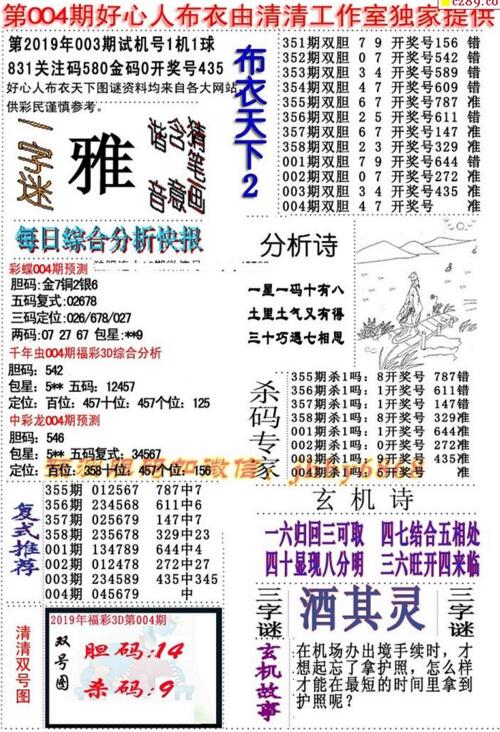 cz89.co
第004期好心人布衣由清清工作室独家提供
第2019年003期试机号1机1球
831关注码580金码0开奖号435
好心人布衣天下图谜资料均来自各大网站
供彩民谨慎参考。
一字迷
雅
猜笔画
含意
谐音
布衣天下2
351期双胆 7 9 开奖号156 错
352期双胆 0 7 开奖号542 错
353期双胆 3 4 开奖号589 错
354期双胆 4 7 开奖号609 错
355期双胆 6 7 开奖号787 准
356期双胆 2 6 开奖号611 准
357期双胆 6 7 开奖号147 准
358期双胆 2 3 开奖号329 准
001期双胆 7 9 开奖号644 错
002期双胆 0 7 开奖号272 准
003期双胆 3 4 开奖号435 准
004期双胆 4 7 开奖号 准
每日综合分析快报
彩蝶004期预测
胆码:金7铜2银6
五码复式:02678
三码定位:026/678/027
两码: 07 27 67 包星:**9
千年虫004期福彩3D综合分析
胆码: 542
包星: 5** 五码: 12457
定位: 百位: 457十位: 457个位: 125
中彩龙004期预测
胆码: 546
包星: 5** 五码复式: 34567
定位: 百位: 358十位: 457个位: 156
分析诗
一星一码十有八
土里土气又有得
三十巧遇七相思
杀码专家
355期杀1吗: 8开奖号 787错
356期杀1吗: 1开奖号 611错
357期杀1吗: 1开奖号 147错
358期杀1吗: 8开奖号 329准
001期杀1吗: 0开奖号 644准
002期杀1吗: 0开奖号 272准
003期杀1吗: 9开奖号 435准
004期杀1吗: 5开奖号 准
复式推荐
355期 012567 787中7
356期 234568 611中6
357期 025679 147中7
358期 235678 329中23
001期 134789 644中4
002期 012478 272中27
003期 234589 435中345
004期 045679 中
玄机诗
一六归回三可取 四七结合五相处
四十显现八分明 三六旺开四来临
清清双号图
2019年福彩3D第004期
双号图
胆码:14
杀码:9
三字谜
酒其灵
三字谜
玄机故事
在机场办出境手续时，才
想起忘了拿护照，怎么样
才能在最短的时间里拿到
护照呢？